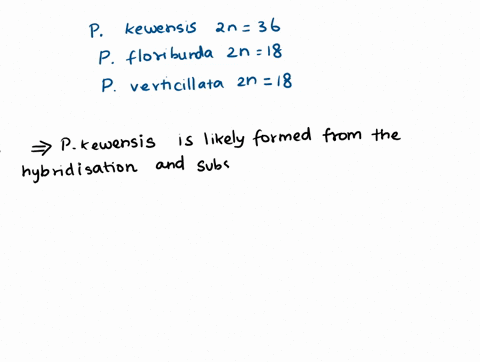 P. kewensis 2n = 36
P. floriburda 2n = 18
P. verticillata 2n = 18
⇒ P. kewensis is likely formed from the
hybridisation and subs